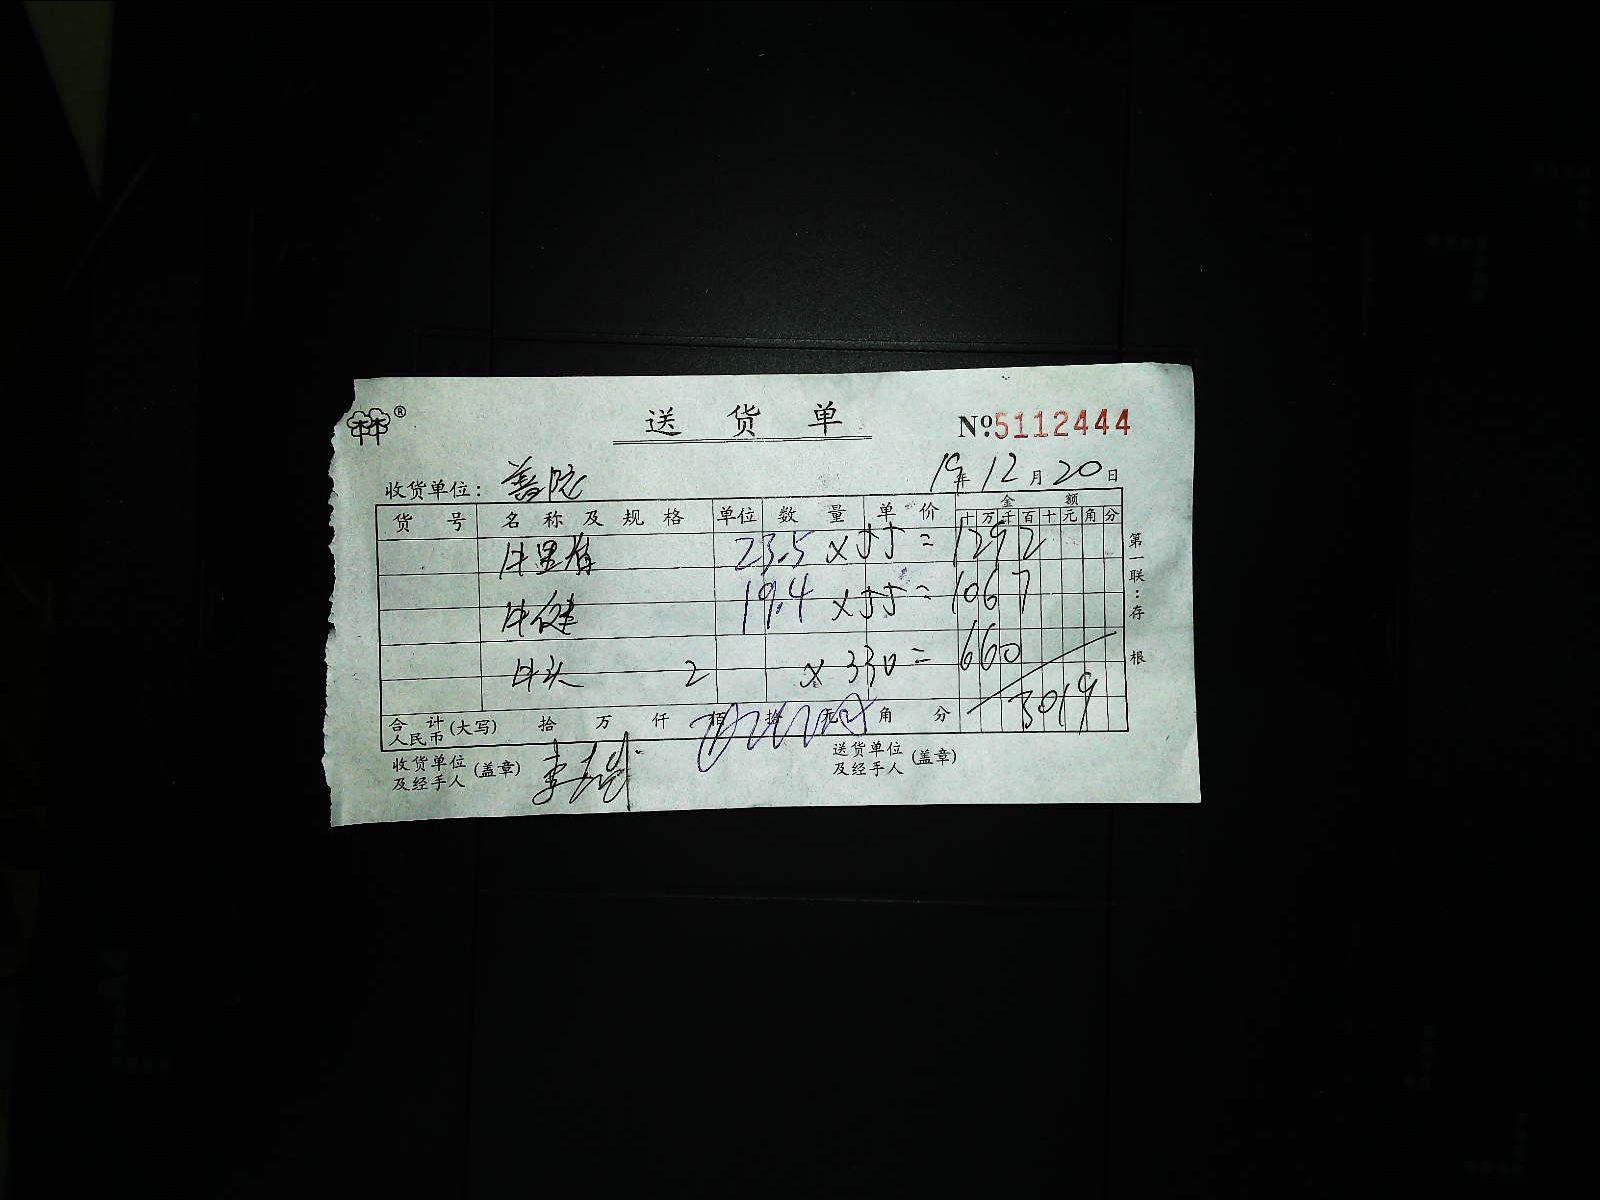 ®
送 货 单
Nº5112444
收货单位: 普陀
19年12月20日
货 号 名 称 及 规 格 单位 数 量 单 价 金 额
十 万 千 百 十 元 角 分
牛里脊 23.5 × 55 = 1292
牛健 19.4 × 55 = 1067
牛头 2 × 330 = 660
3019
合 计 (大写) 拾 万 仟 佰 拾 元 角 分
人民币
收货单位 (盖章)
及经手人
送货单位 (盖章)
及经手人
第一联:存根